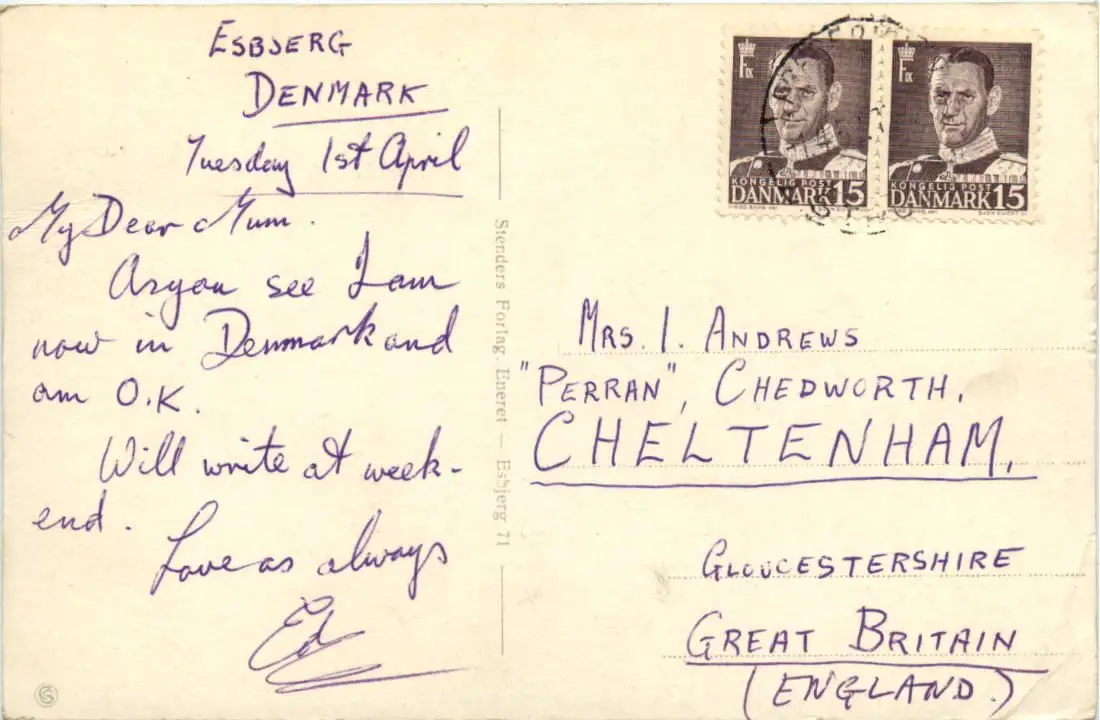 ESBJERG
DENMARK
Tuesday 1st April
My Dear Mum.
As you see I am
now in Denmark and
am O.K.
Will write at week-
end.
Love as always
Ed
Stenders Forlag. Eneret — Esbjerg 71
FIX
KONGELIG POST
DANMARK 15
FIX
KONGELIG POST
DANMARK 15
MRS. I. ANDREWS
"PERRAN", CHEDWORTH.
CHELTENHAM.
GLOUCESTERSHIRE
GREAT BRITAIN
(ENGLAND.)